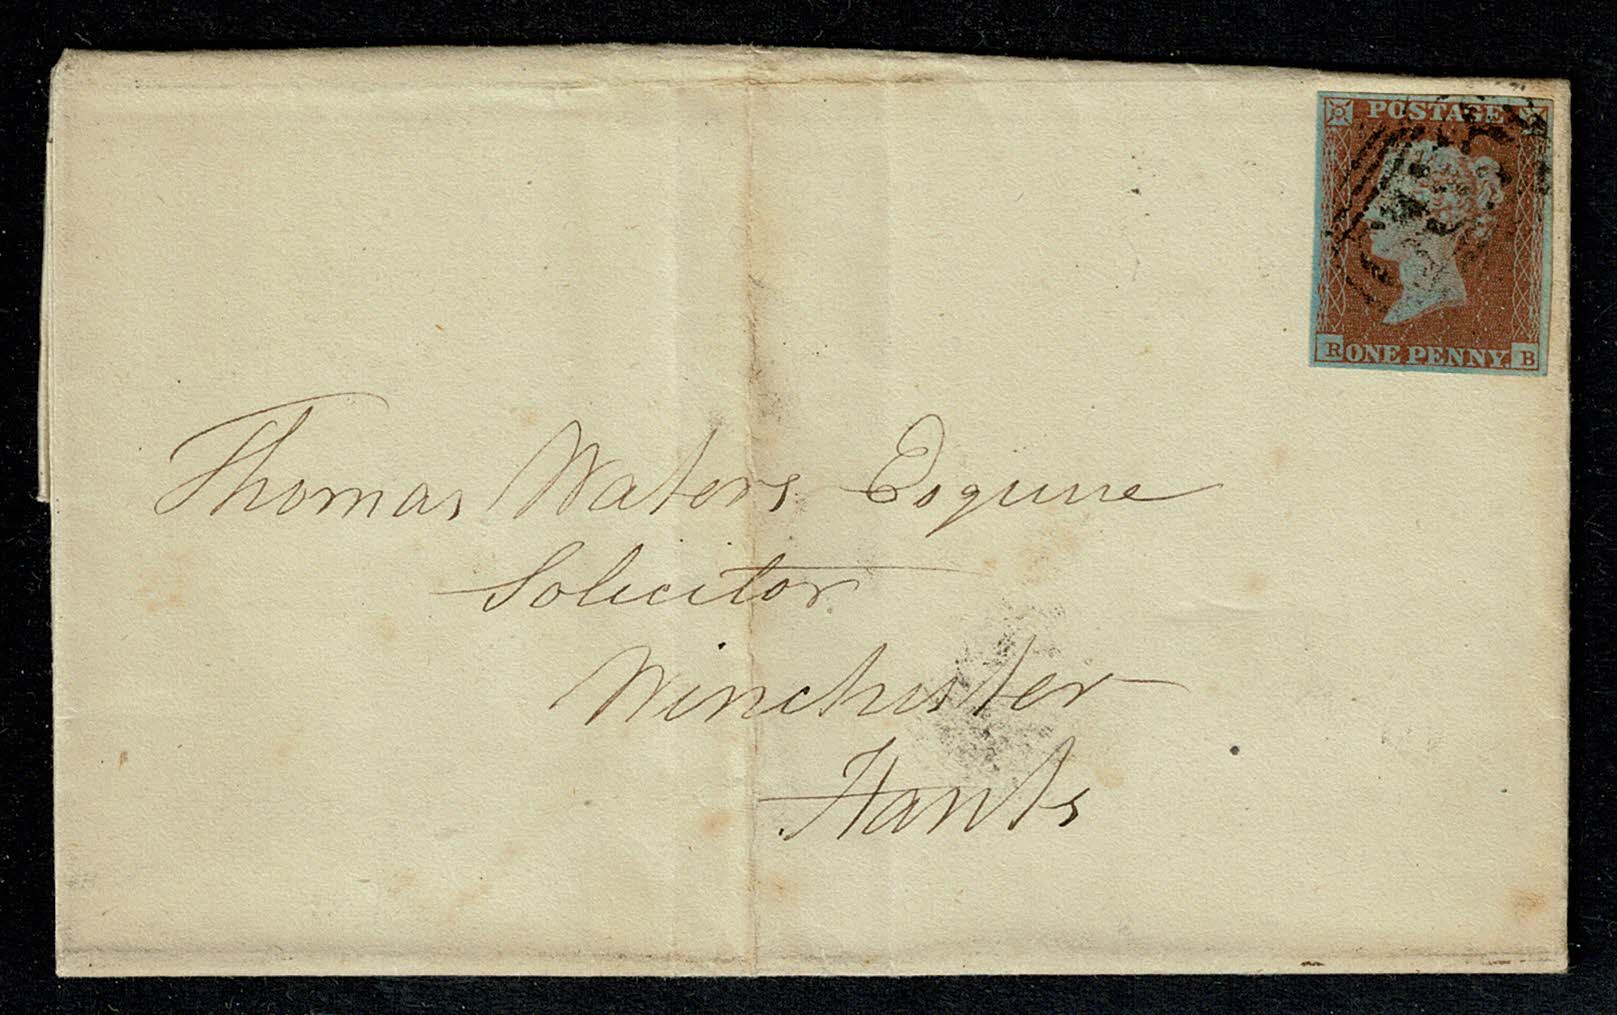 POSTAGE
R ONE PENNY. B
Thomas Waters Esquire
Solicitor
Winchester
Hants